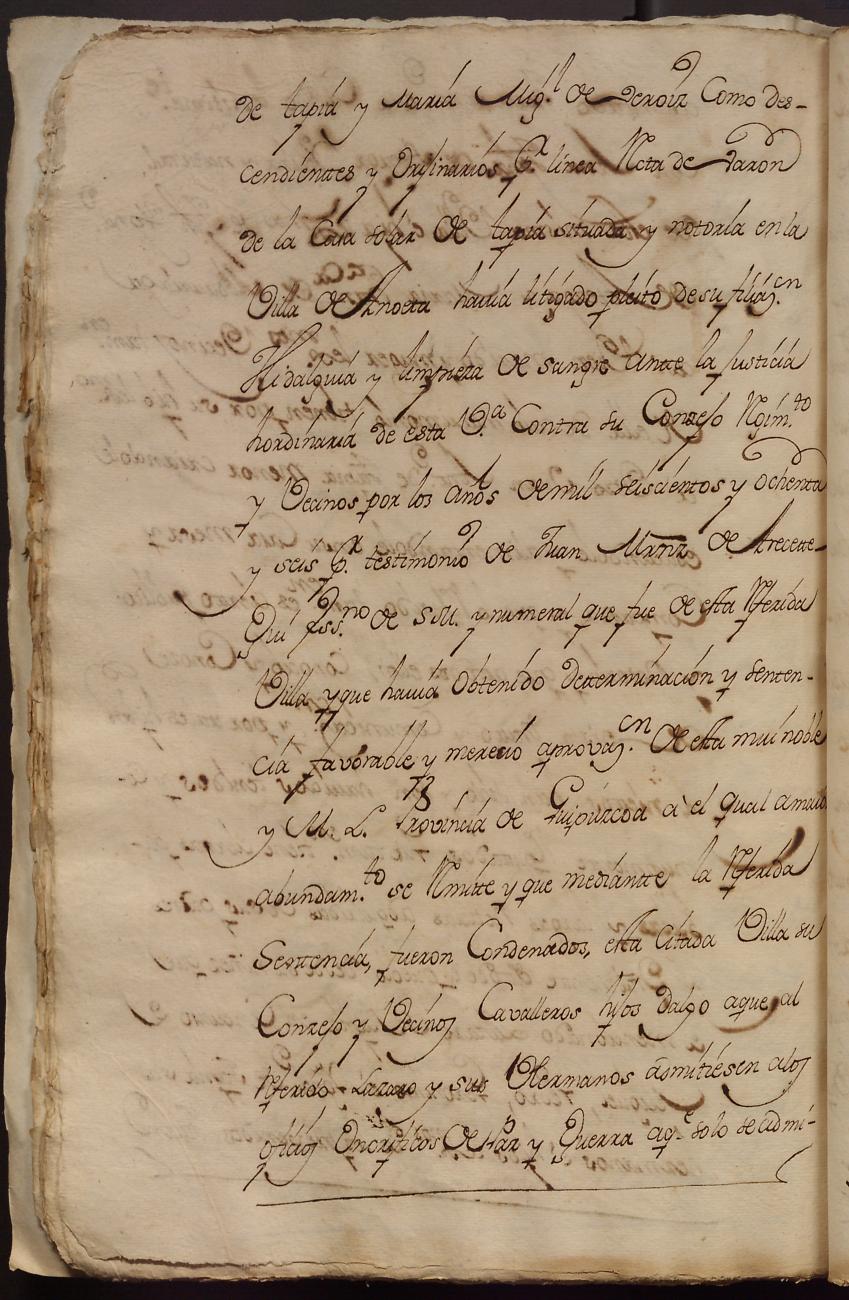 de tapia y Maria Mig.l de Veroiz Como des-
cendientes y Orijinarios P.r linea Rcta de Varon
de la Casa solar de tapia situada y notoria en la
Villa de Anoeta havia litigado pleito de su filiaz.cn
Hidalguia y limpieza de sangre Antte la Justicia
hordinaria de esta V.a Contra su Conzejo Rgim.to
y Vecinos por los años de mil seiscientos y Ochenta
y seis P.r testimonio de Juan Mrnz de Arrecette-
Qui ess.no de S.M. y numeral que fue de esta Rferida
Villa y que havia Obtenido Determinación y senten-
cia favorable y mereció aprovaz.cn de esta mui noble
y M. L. Provincia de Guipuzcoa a el qual a maior
abundam.to se Rmitte y que mediantte la Rferida
Senttencia, fueron Condenados, esta Citada Villa su
Conzejo y Vecinos Cavalleros hijos dalgo aque al
Rferido Lazaro y sus Hermanos admitiesen alos
ofizios Onorificos de Paz y Guerra aq.e solo se admi-